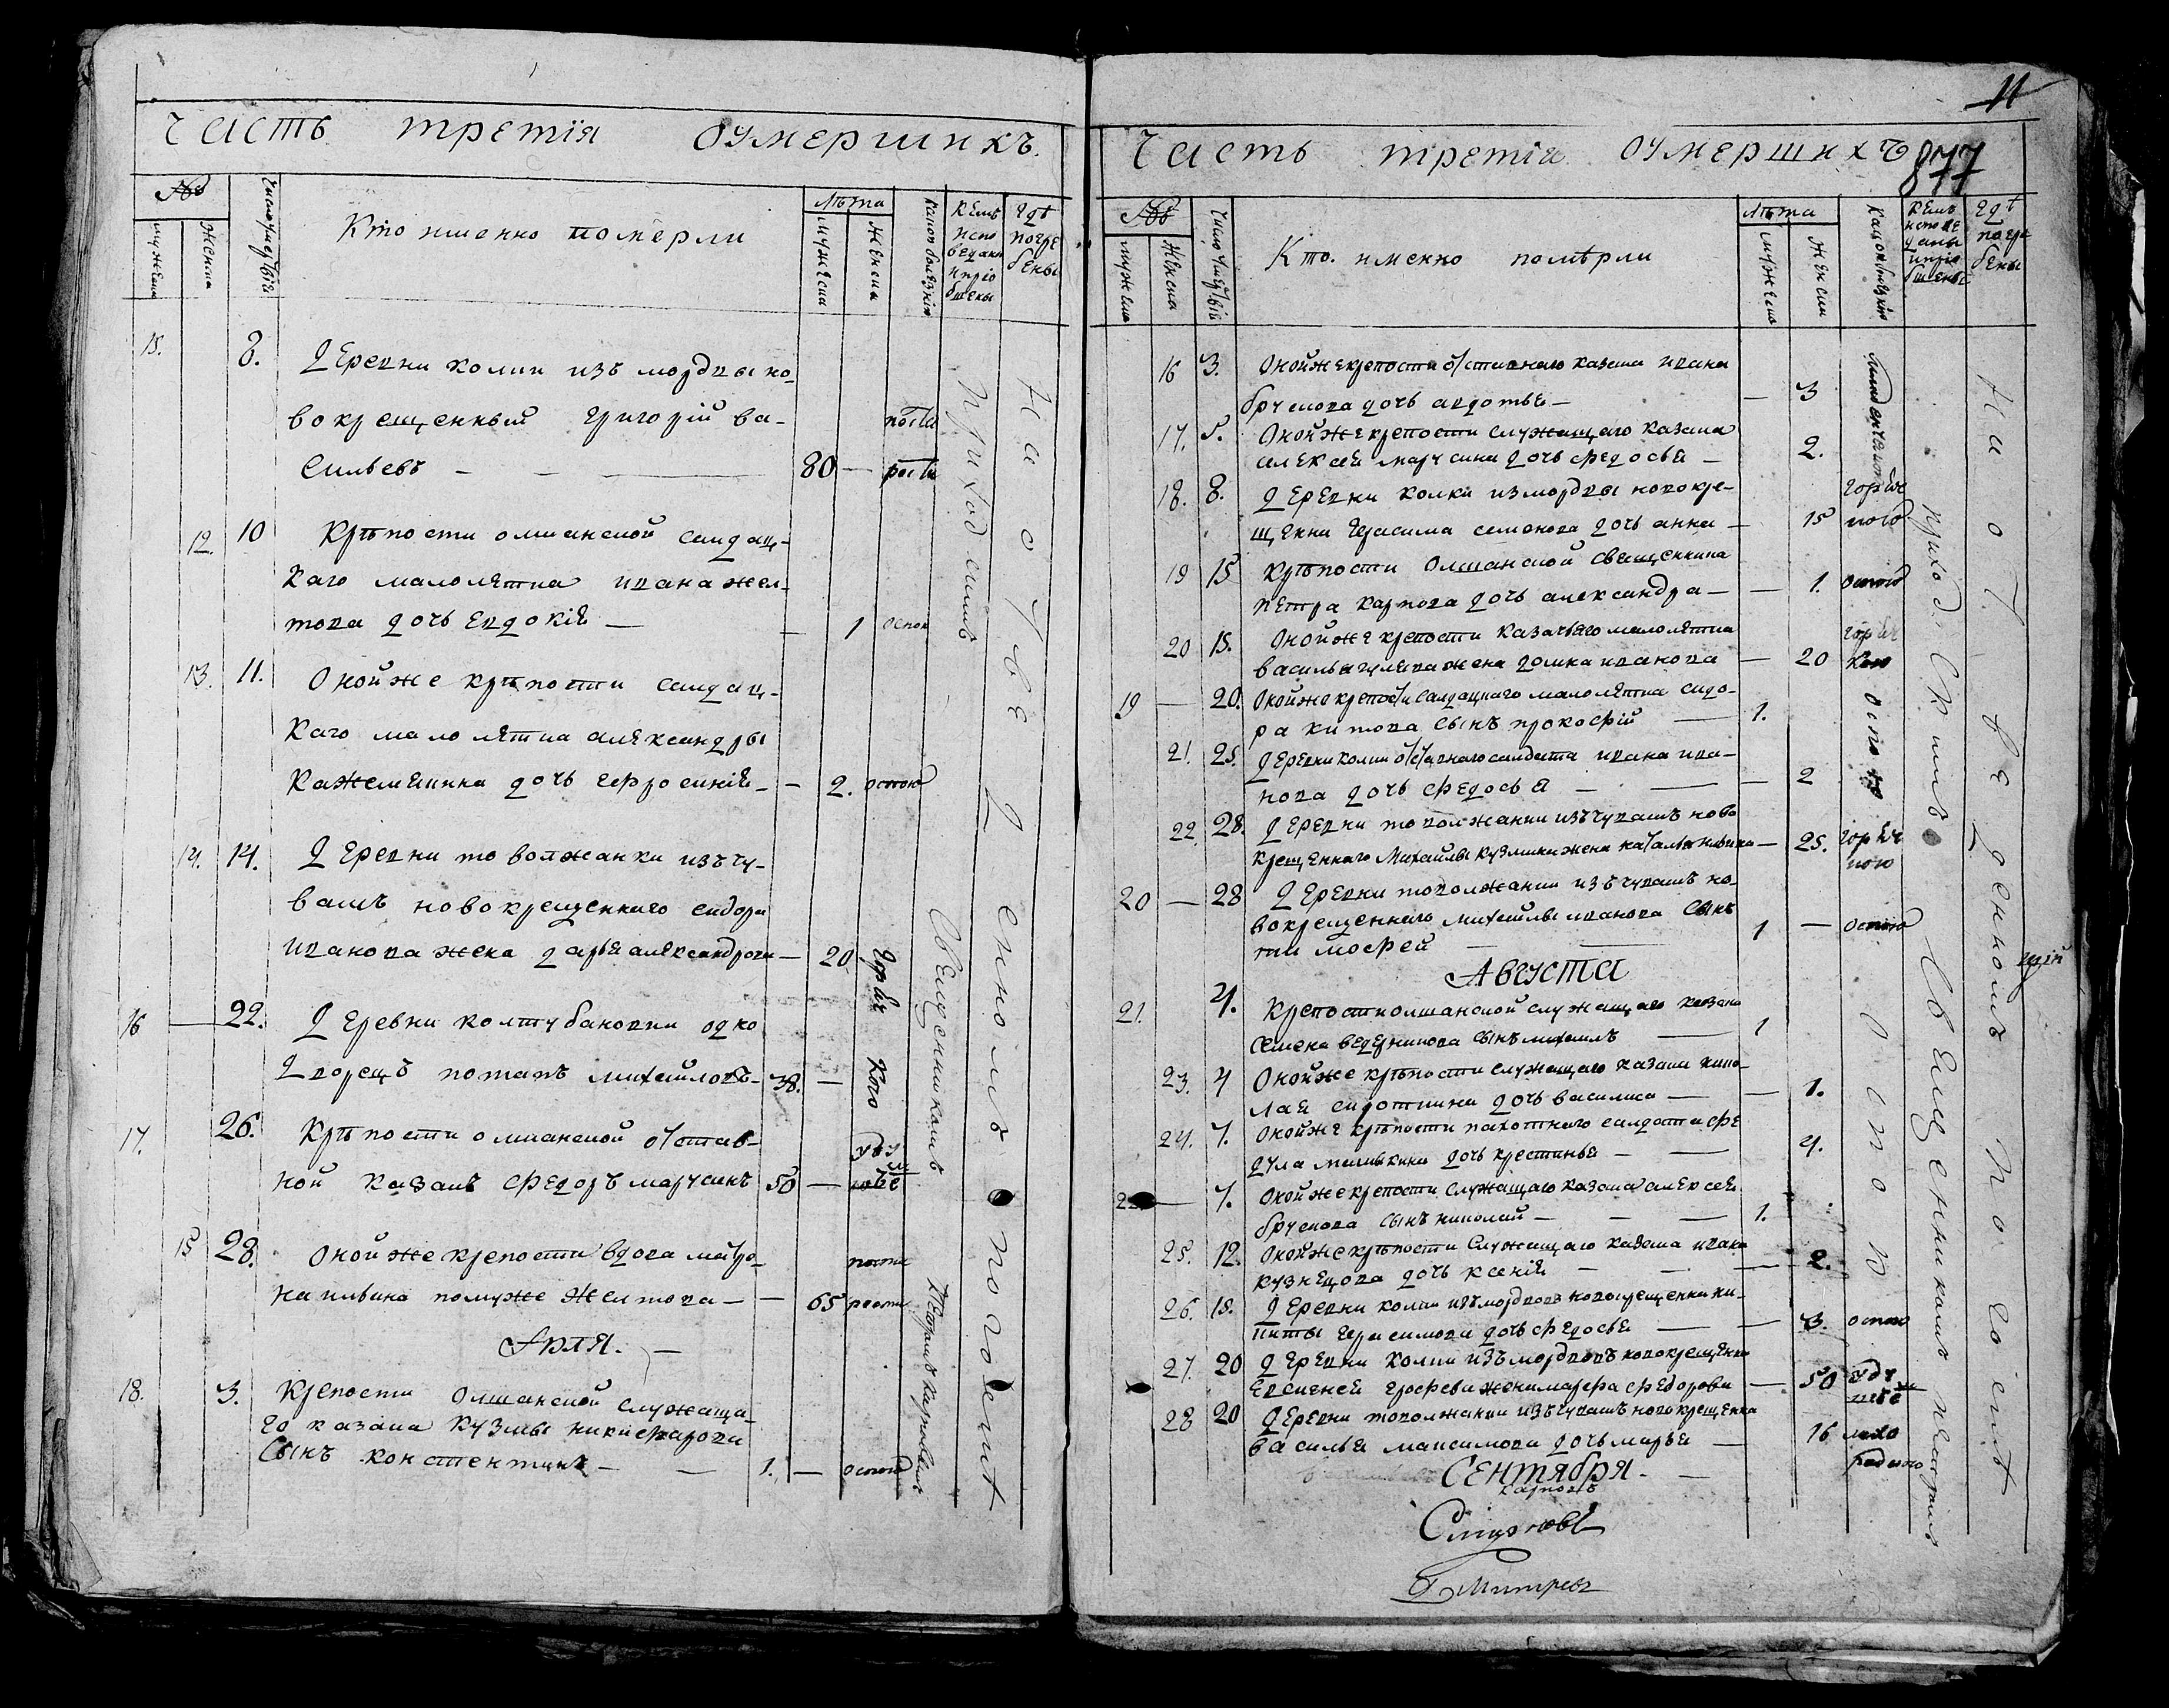 часть третія оумершихъ
№
мужеска
женска
число умертвія
Кто именно померли
лѣта
мужеска
женска
какою болезнію
кемъ
испо
ведани
и пріо
бщены
гдѣ
погре
бены
15. 8. деревни колки изъ мордвы но-
вокрещенный григорій ва-
сильевъ — — 80 —
12. 10 Крѣпости олшанской салдац-
каго малолѣтка ивана жел-
това дочь евдокія — — 1 оспою
13. 11. Оной же крѣпости салдац-
каго малолѣтка александры
кажемякина дочь ефросинія — — 2. оспою
14. 14. деревни товолжанки изъ чу-
вашъ новокрещеннаго сидора
иванова жена дарья александрова — 20 горяч
кою
16 — 22. деревни колтубановки одно
дворецъ потапъ михайловъ — 38. —
17. 26. Крѣпости олшанской отстав-
ной казакъ федоръ марусинъ 50 —
15 28. Оной же крепости вдова матро-
на ильина по муже желтова — — 65
Іюля. —
18. 3. Крепости олшанской служаща-
го казака кузмы никифарова
сынъ константинъ — — 1. — оспою
приходскимъ священникомъ петромъ карповымъ
на отведенномъ погосте
11
часть третія оумершихъ
877
№
мужеска
женска
число умертвія
Кто именно помѣрли
лѣта
мужеска
женска
какою болезнію
кемъ
исповѣ
даны
и пріо
бщены
гдѣ
погре
бены
16 3. Оной же крепости отставного казака ивана
брускова дочь авдотья — — 3
17. 5. Оной же крепости служащаго казака
алексея марусина дочь федосья — 2.
18. 8. деревни колки из мордвы новокре-
щенна герасима семенова дочь анна — 15
19 15 крѣпости олшанской священника
петра карпова дочь александра — — 1. оспою
20 15. Оной же крепости казачьяго малолѣтка
василья гуляева жена домна иванова — 20
19 — 20. Оной же крепости салдацкаго малолѣтка сидо-
ра китова сынъ прокофій — 1.
21. 25. деревни колки отставнаго салдата ивана ива-
нова дочь федосья — — — 2
оспою
22. 28. деревни товолжанки изъ чувашъ ново
крещеннаго Михайлы кузмина жена наталья — 25.
20 — 28 деревни товолжанки изъ чувашъ но-
вокрещеннаго михайлы иванова сынъ
тимофей — — 1 — оспою
Августа
21. 4. Крепости олшанской служащаго казака
семена ведерникова сынъ михаилъ — 1
23. 4 Оной же крѣпости служащаго казака нико-
лая сироткина дочь василиса — — 1.
24. 7. Оной же крѣпости пахотнаго салдата фе
дула дочь крестинья — — 4.
22 — 7. Оной же крепости служащаго казака алексея
брускова сынъ николай — — — 1.
25. 12. Оной же крѣпости служащаго казака ивана
кузнецова дочь ксенія — — — 2.
оспою
26. 18. деревни колки изъ мордвовъ новокрещенна ни-
киты герасимова дочь федосья — — 3. оспою
27. 20 деревни колки изъ мордвовъ новокрещенна
евсигнея ерофеева жена марфа федорова — 50
28 20 деревни товолжанки изъ чувашъ новокрещенна
василья максимова дочь марья — 16 лихо
радкою
Сентября. —
карповъ
приходскимъ священникомъ петромъ
на отведенномъ погосте